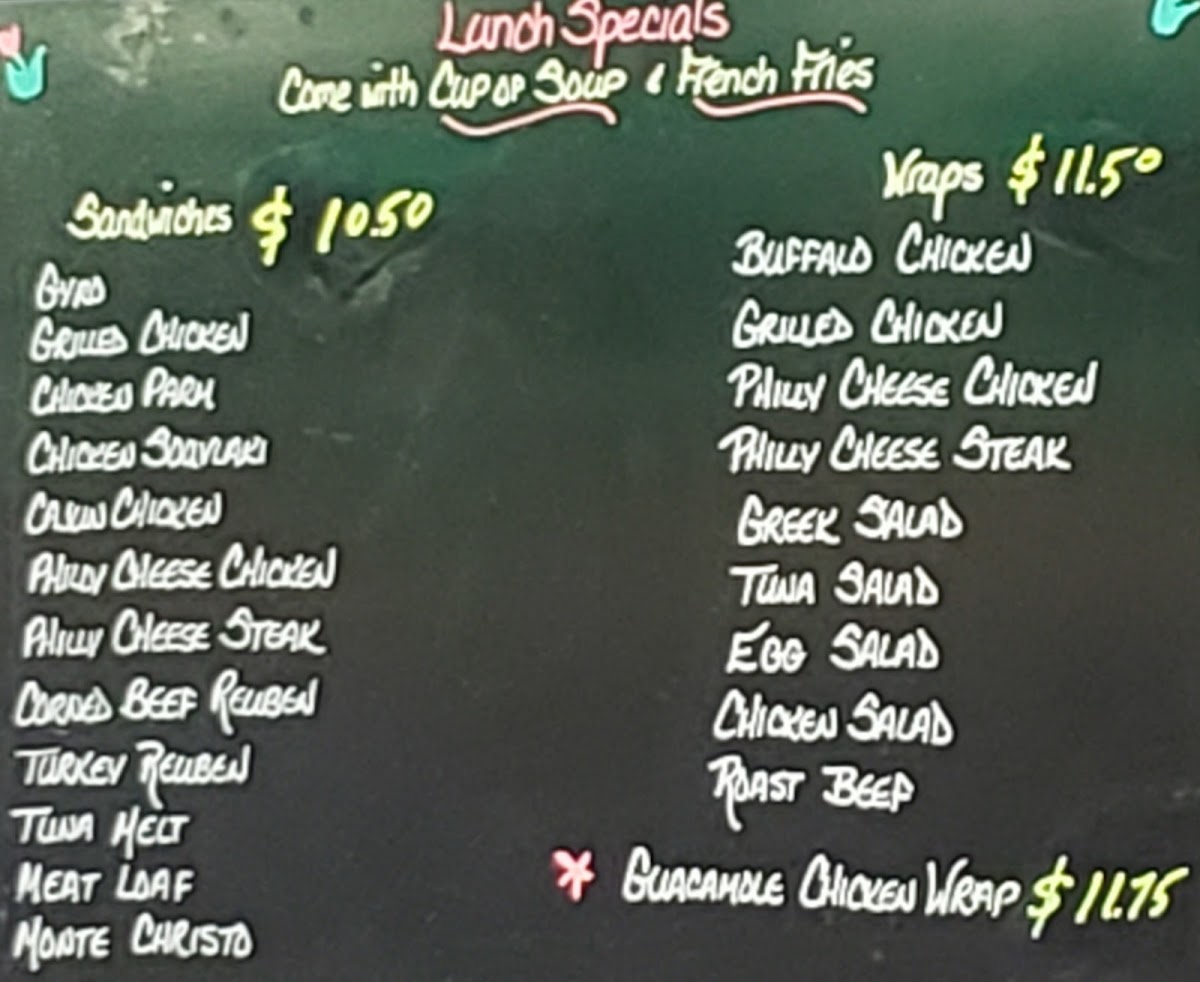 Lunch Specials
Come with Cup of Soup & French Fries
Sandwiches $ 10.50
Gyro
Grilled Chicken
Chicken Parm
Chicken Souvlaki
Cajun Chicken
Philly Cheese Chicken
Philly Cheese Steak
Corned Beef Reuben
Turkey Reuben
Tuna Melt
Meat Loaf
Monte Christo
Wraps $ 11.50
Buffalo Chicken
Grilled Chicken
Philly Cheese Chicken
Philly Cheese Steak
Greek Salad
Tuna Salad
Egg Salad
Chicken Salad
Roast Beef
* Guacamole Chicken Wrap $ 11.75